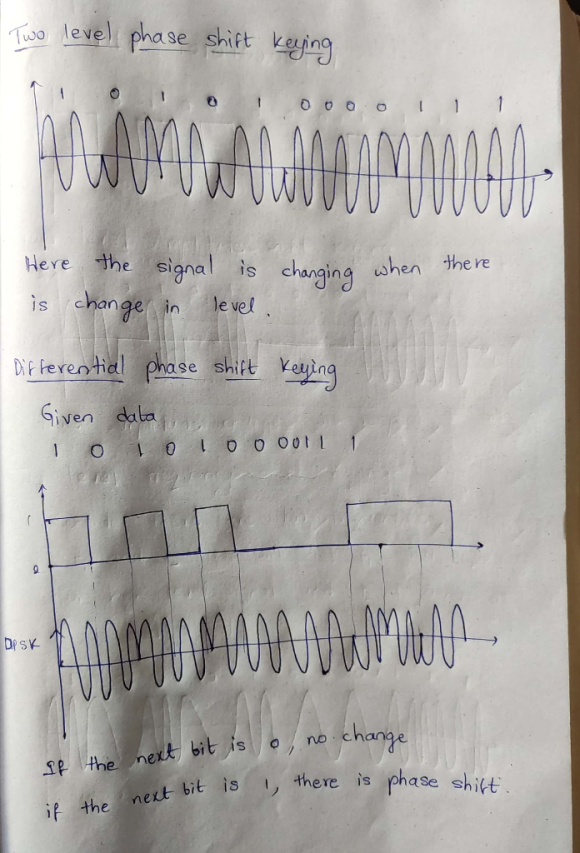 Two level phase shift keying
1 0 1 0 1 0 0 0 0 1 1 1
Here the signal is changing when there
is change in level.
Differential phase shift keying
Given data
1 0 1 0 1 0 0 0 0 1 1 1
1
0
DPSK
If the next bit is 0, no change
if the next bit is 1, there is phase shift.